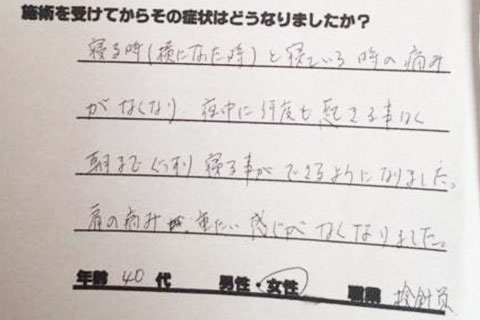 施術を受けてからその症状はどうなりましたか？
寝る時(横になった時)と寝ている時の痛み
がなくなり、夜中に何度も起きる事なく
朝までぐっすり寝る事ができるようになりました。
肩の痛みや、重たい感じがなくなりました。
年齢 40 代 男性・女性 職業 検針員